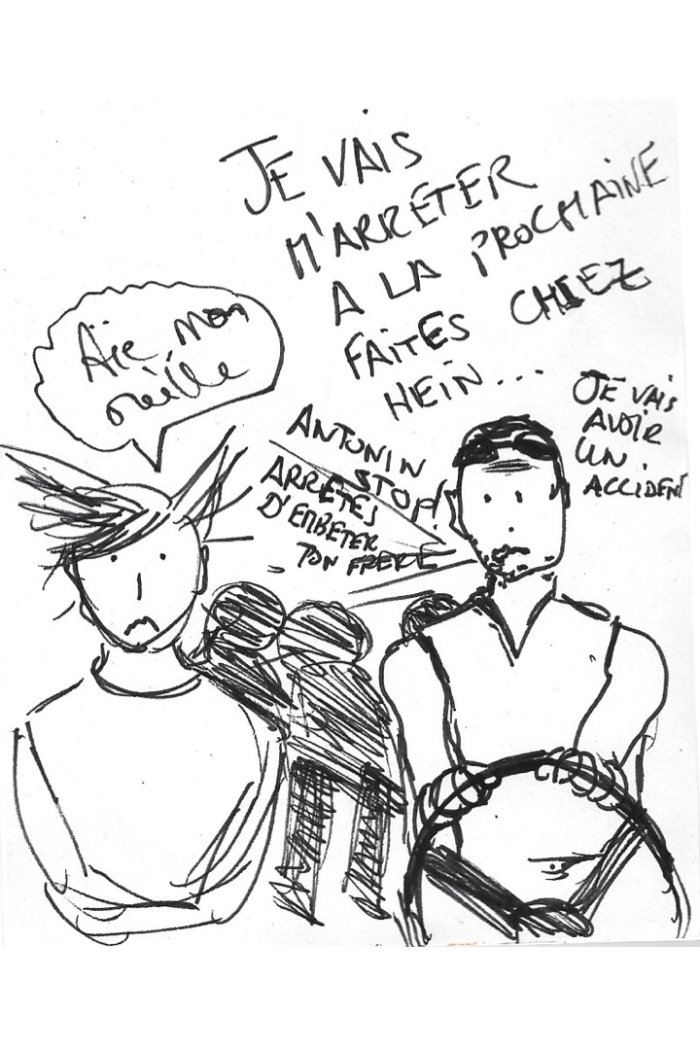 JE VAIS
M'ARRÊTER
A LA PROCHAINE
FAITES CHIEZ
HEIN...
Aïe mon
oreille
JE VAIS
AVOIR
UN
ACCIDENT
ANTONIN
STOP!
ARRÊTES
D'EMBETER
TON FRERE